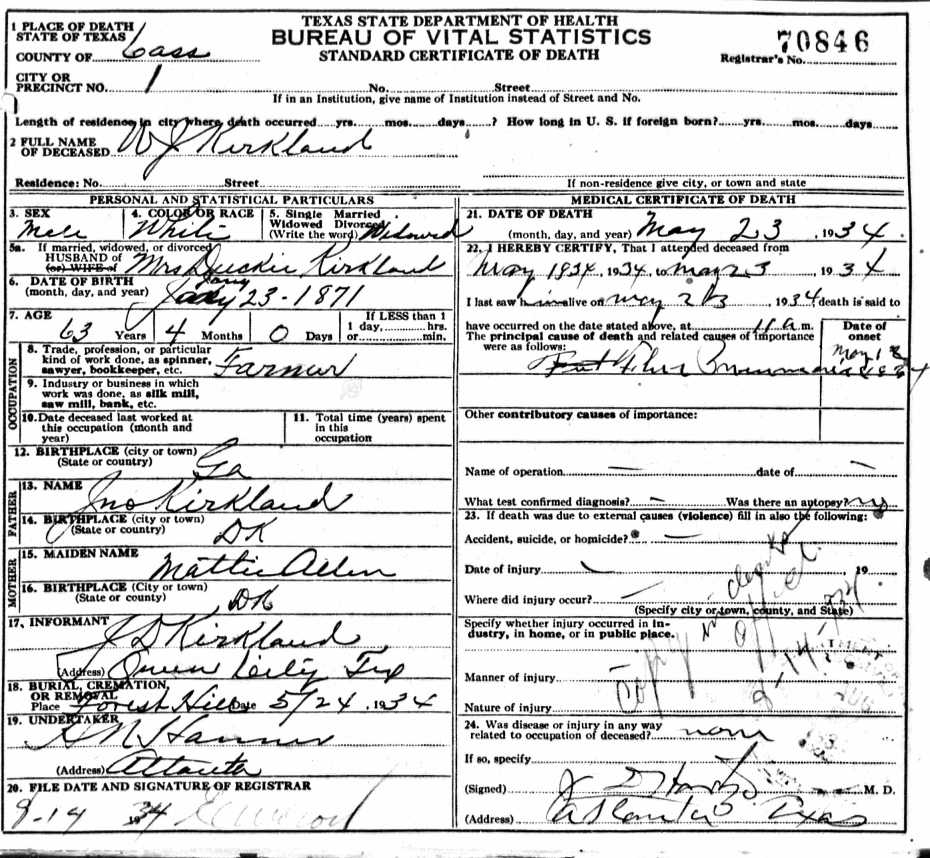 TEXAS STATE DEPARTMENT OF HEALTH
BUREAU OF VITAL STATISTICS
STANDARD CERTIFICATE OF DEATH
70846
Registrar's No.
1 PLACE OF DEATH
STATE OF TEXAS
COUNTY OF Cass
CITY OR
PRECINCT NO. 1 No. Street
If in an Institution, give name of Institution instead of Street and No.
Length of residence in city where death occurred yrs. mos. days ? How long in U. S. if foreign born? yrs. mos. days
2 FULL NAME
OF DECEASED W J Kirkland
Residence: No. Street
If non-residence give city, or town and state
PERSONAL AND STATISTICAL PARTICULARS
3. SEX 4. COLOR OR RACE 5. Single Married
Widowed Divorced
(Write the word) Widowed
Male White
5a. If married, widowed, or divorced
HUSBAND of
(or) WIFE of Mrs Kirkland
6. DATE OF BIRTH
(month, day, and year) 23-1871
7. AGE If LESS than 1
1 day, hrs.
or min.
63 Years 4 Months 0 Days
OCCUPATION
8. Trade, profession, or particular
kind of work done, as spinner,
sawyer, bookkeeper, etc. Farmer
9. Industry or business in which
work was done, as silk mill,
saw mill, bank, etc.
10. Date deceased last worked at
this occupation (month and
year)
11. Total time (years) spent
in this
occupation
12. BIRTHPLACE (city or town)
(State or country) Ga
FATHER
13. NAME
Jno Kirkland
14. BIRTHPLACE (city or town)
(State or country) DK
MOTHER
15. MAIDEN NAME
Mattie Allen
16. BIRTHPLACE (City or town)
(State or country) DK
17. INFORMANT
J D Kirkland
(Address) Queen City Tex
18. BURIAL, CREMATION,
OR REMOVAL
Place Forest Hill Date 5/24, 1934
19. UNDERTAKER
H M Hanner
(Address) Atlanta
20. FILE DATE AND SIGNATURE OF REGISTRAR
8-14 1934
MEDICAL CERTIFICATE OF DEATH
21. DATE OF DEATH
(month, day, and year) May 23, 1934.
22. I HEREBY CERTIFY, That I attended deceased from
May 1934, 1934, to May 23 1934
I last saw him alive on May 23, 1934, death is said to
have occurred on the date stated above, at 11 a. m.
The principal cause of death and related causes of importance
were as follows:
Date of
onset
May 18
1934
Other contributory causes of importance:
Name of operation — date of —
What test confirmed diagnosis? — Was there an autopsy? no
23. If death was due to external causes (violence) fill in also the following:
Accident, suicide, or homicide? —
Date of injury , 19
Where did injury occur? —
(Specify city or town, county, and State)
Specify whether injury occurred in in-
dustry, in home, or in public place.
Manner of injury
Nature of injury
copy in
office
8-14-34
24. Was disease or injury in any way
related to occupation of deceased? none
If so, specify
(Signed) M. D.
(Address) Atlanta Texas